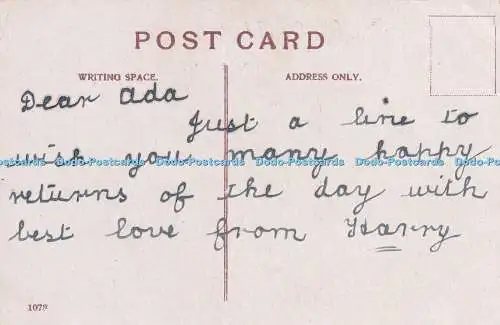 POST CARD
WRITING SPACE.
ADDRESS ONLY.
Dear Ada
Just a line to
wish you many happy
Dodo-Postcards Dodo-Postcards Dodo-Postcards Dodo-Postcards Dodo-Postcards
returns of the day with
best love from Harry